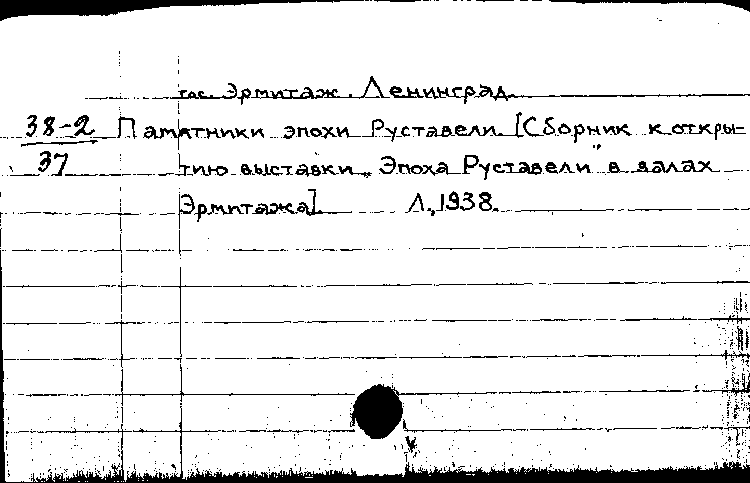 гос. Эрмитаж. Ленинград.
38-2 Памятники эпохи Руставели. [Сборник к откры-
37 тию выставки „Эпоха Руставели" в залах
Эрмитажа]. Л., 1938.